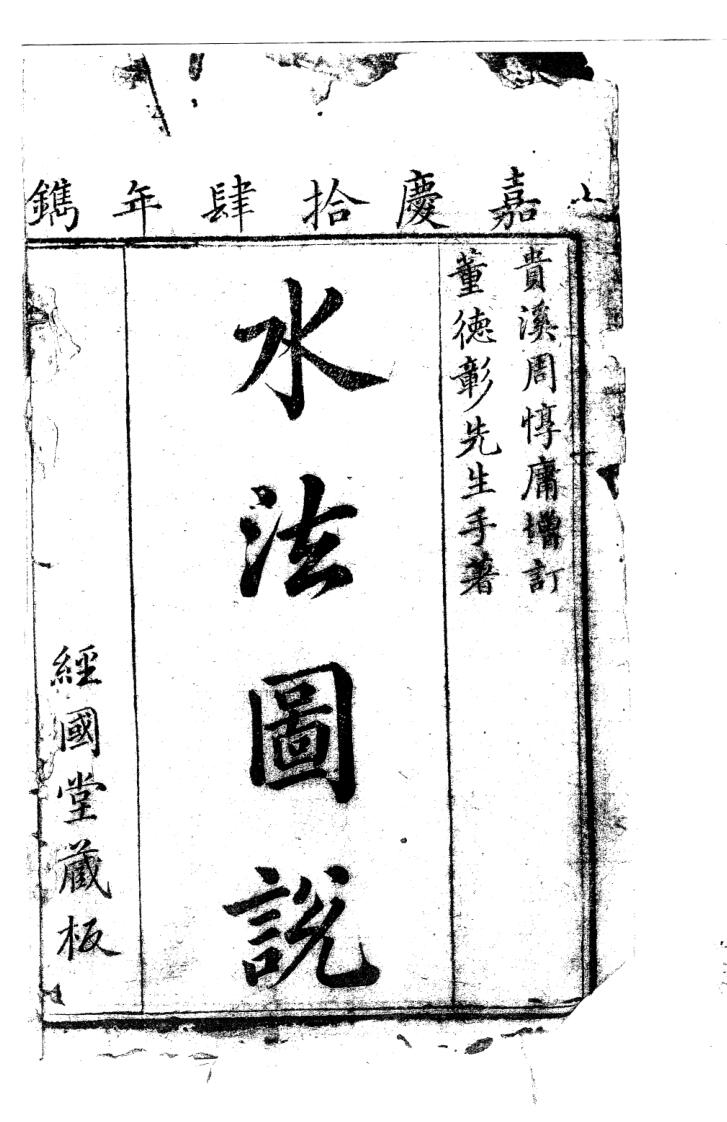 嘉慶拾肆年鐫
貴溪周惇庸增訂
董德彰先生手著
水法圖說
經國堂藏板